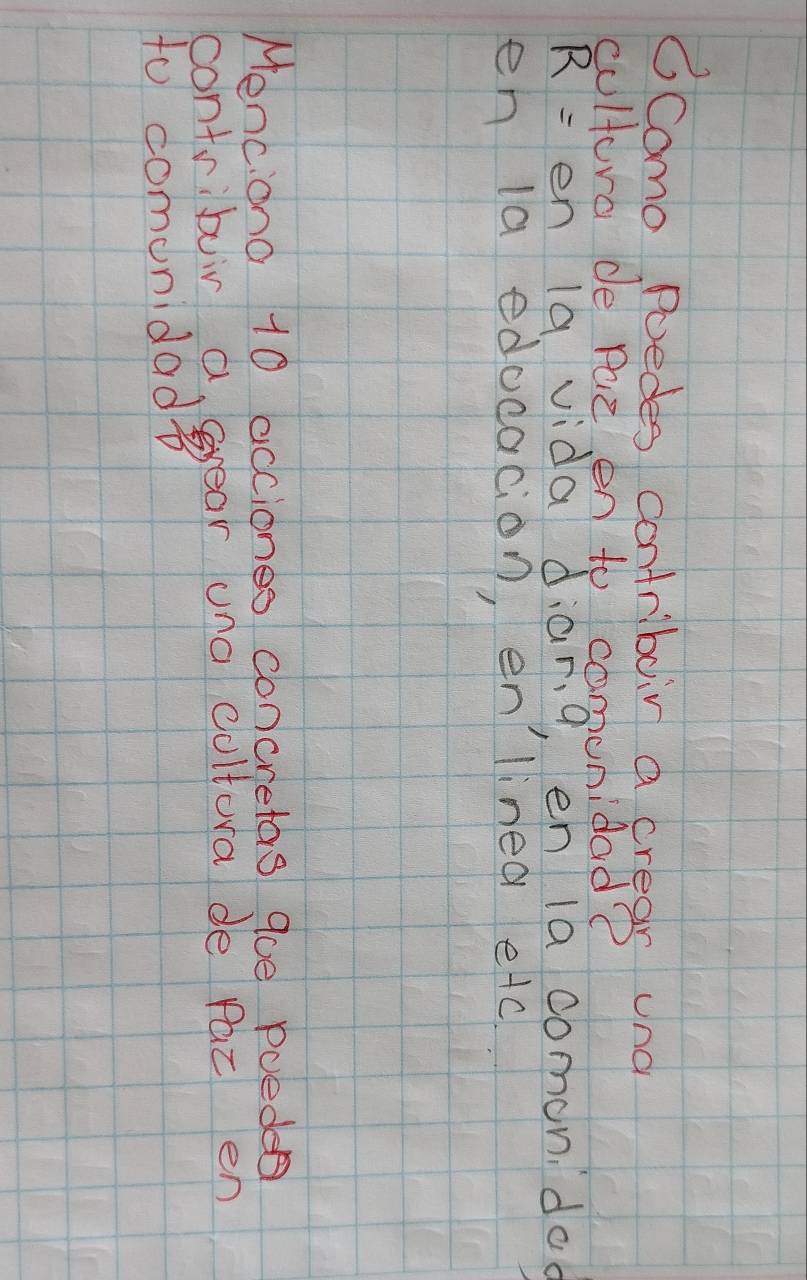 ¿Como Puedes contribuir a crear una
cultura de Paz en tu comunidad?
R= en la vida diaria, en la comunidad
en la educacion, en linea etc...
Menciona 10 acciones concretas que puedes
contribuir a crear una cultura de Paz en
tu comunidad